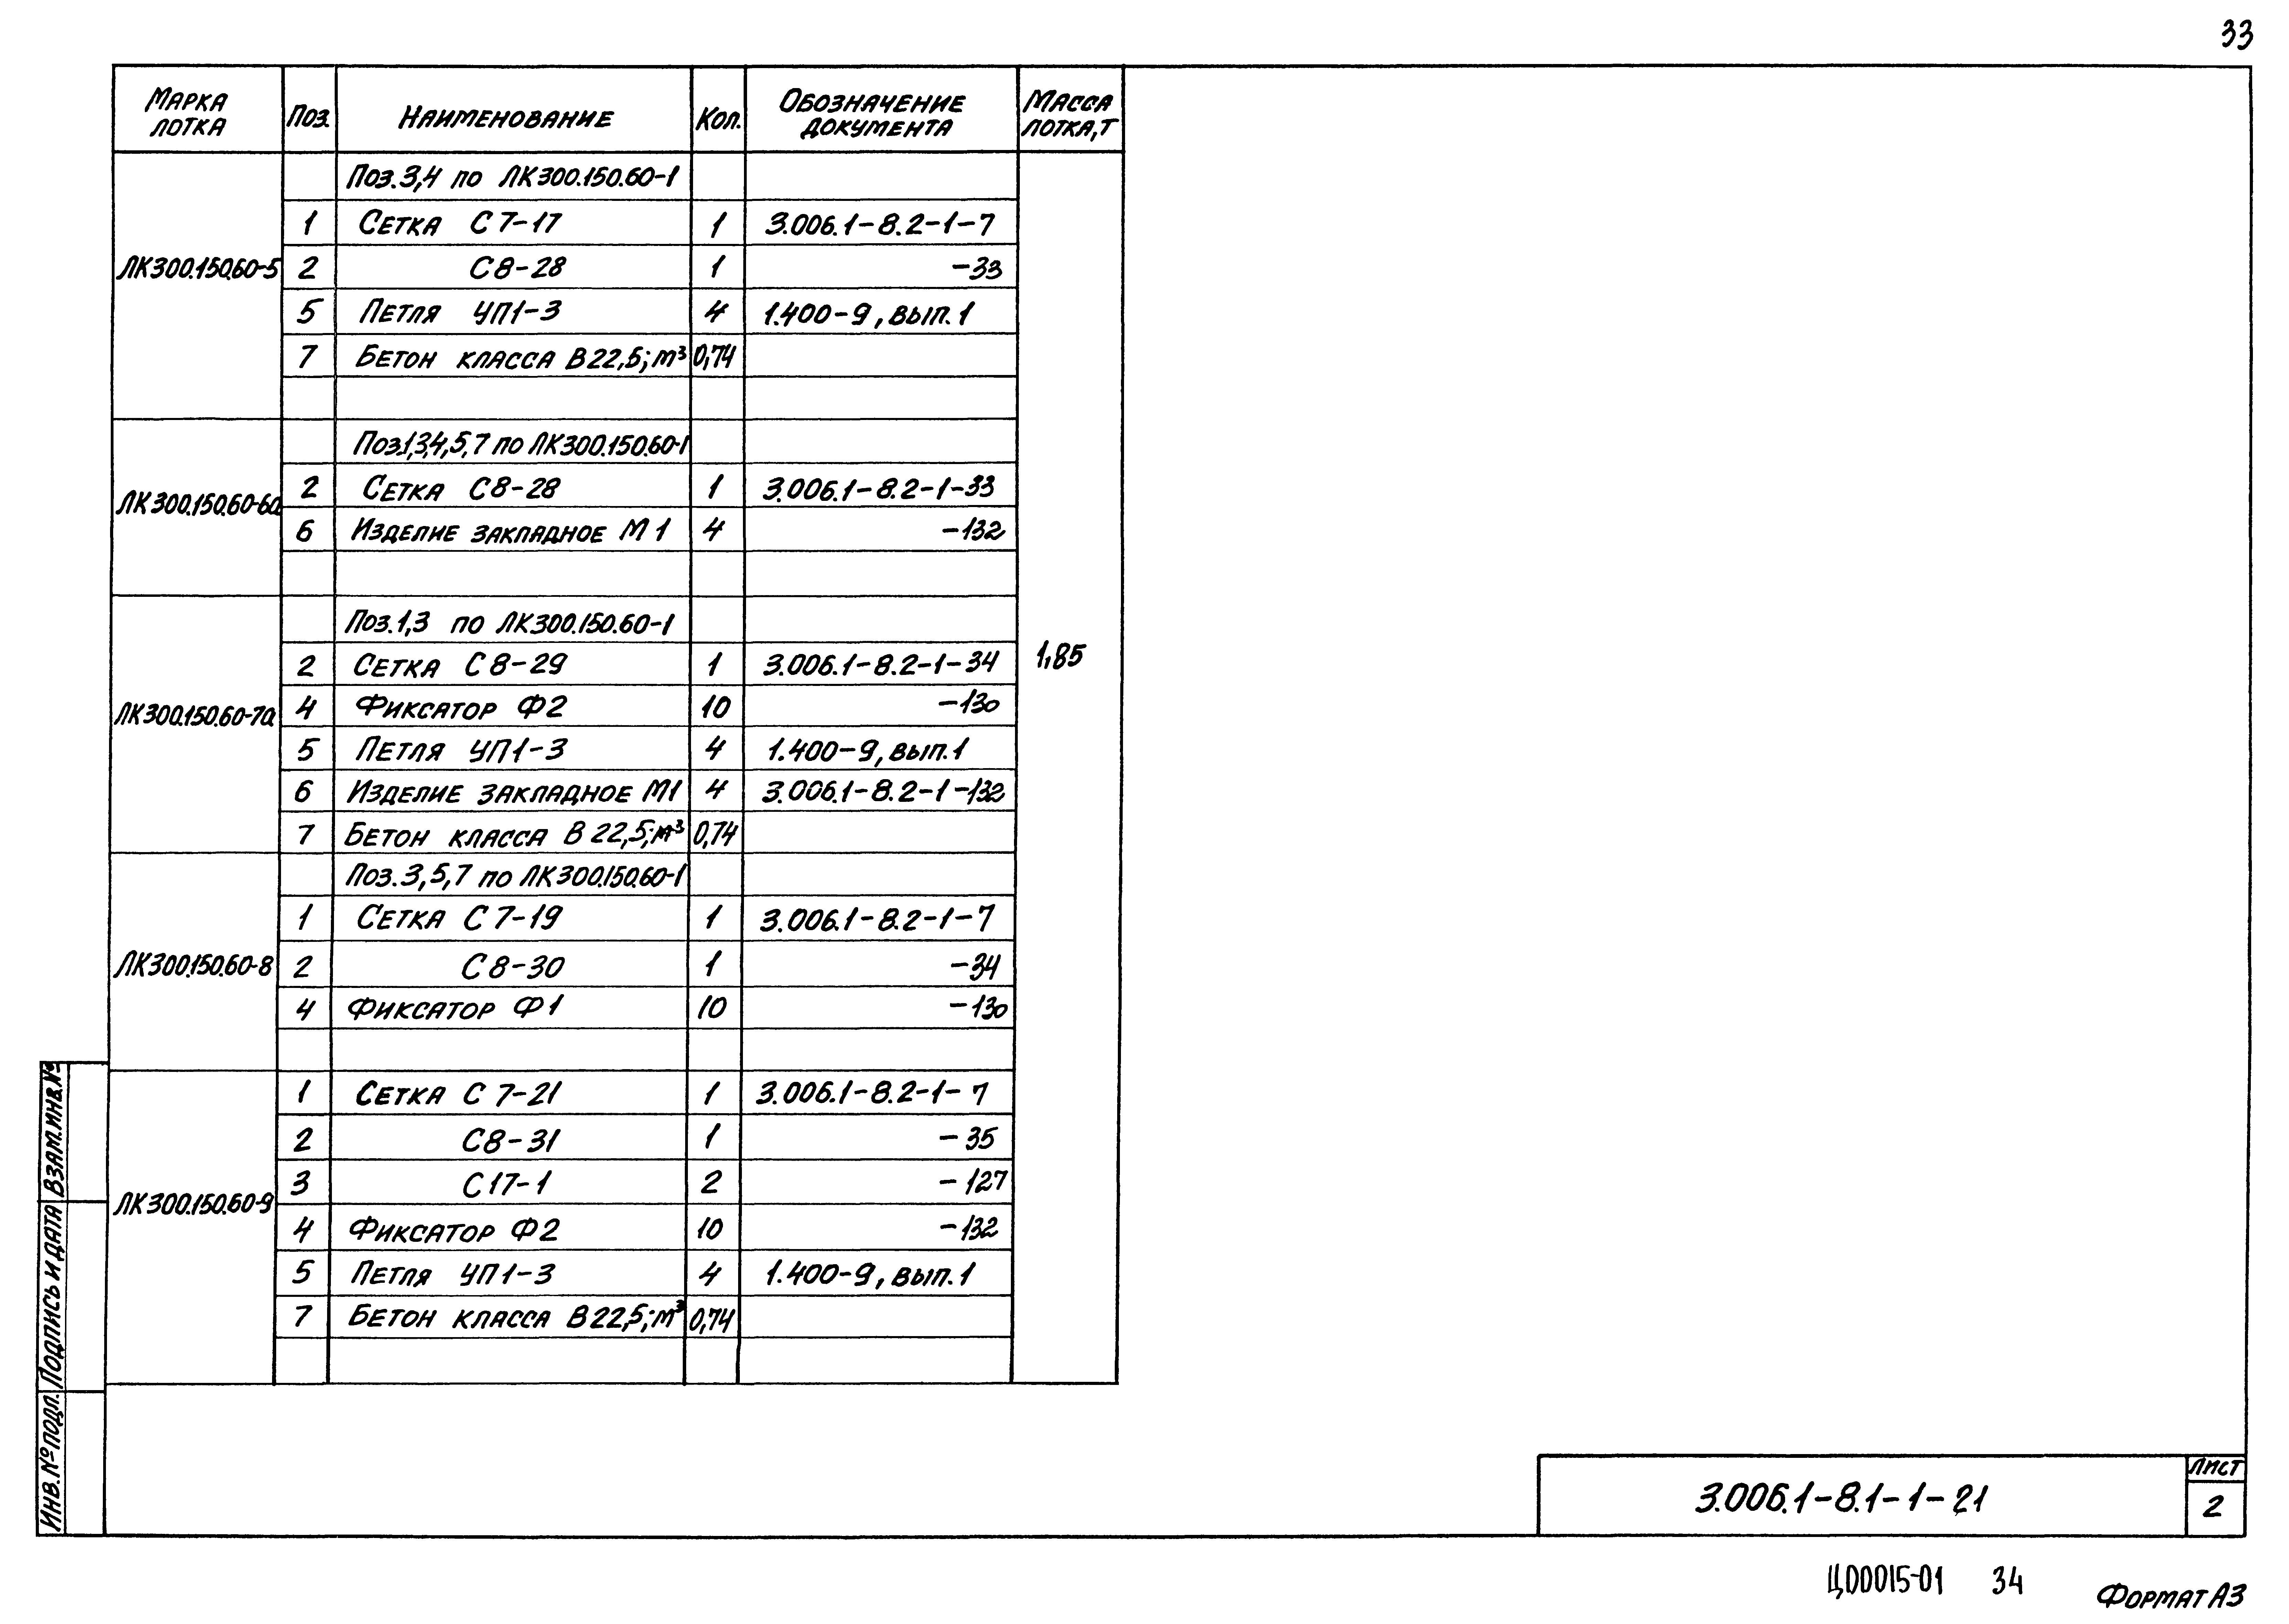 33
Марка лотка Поз. Наименование Кол. Обозначение документа Масса лотка, т
Поз. 3,4 по ЛК300.150.60-1
1 Сетка С7-17 1 3.006.1-8.2-1-7
ЛК300.150.60-5 2 С8-28 1 -33
5 Петля УП1-3 4 1.400-9, вып. 1
7 Бетон класса В22,5; м³ 0,74
Поз.1,3,4,5,7 по ЛК300.150.60-1
ЛК300.150.60-6а 2 Сетка С8-28 1 3.006.1-8.2-1-33
6 Изделие закладное М1 4 -132
Поз. 1,3 по ЛК300.150.60-1
2 Сетка С8-29 1 3.006.1-8.2-1-34 1,85
ЛК300.150.60-7а 4 Фиксатор Ф2 10 -130
5 Петля УП1-3 4 1.400-9, вып. 1
6 Изделие закладное М1 4 3.006.1-8.2-1-132
7 Бетон класса В22,5; м³ 0,74
Поз. 3,5,7 по ЛК300.150.60-1
1 Сетка С7-19 1 3.006.1-8.2-1-7
ЛК300.150.60-8 2 С8-30 1 -34
4 Фиксатор Ф1 10 -130
1 Сетка С7-21 1 3.006.1-8.2-1-7
2 С8-31 1 -35
ЛК300.150.60-9 3 С17-1 2 -127
4 Фиксатор Ф2 10 -132
5 Петля УП1-3 4 1.400-9, вып. 1
7 Бетон класса В22,5; м³ 0,74
Взам.инв.№
Подпись и дата
Инв.№ подл.
3.006.1-8.1-1-21
Лист
2
ЦД0015-01 34
Формат А3